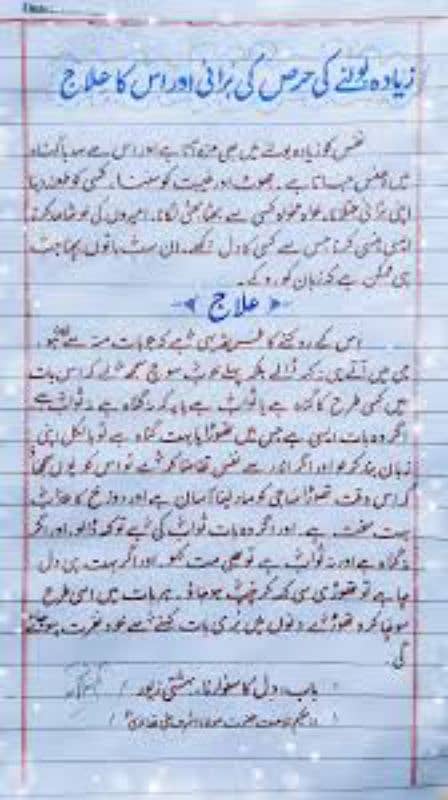 زیادہ بولنے کی حرص کی بُرائی اور اس کا علاج
نفس کو زیادہ بولنے میں بھی مزہ آتا ہے اور اس سے صدہا گناہ
میں پھنس جاتا ہے۔ جھوٹ اور غیبت کو سننا۔ کسی کو طعنہ دینا
اپنی بڑائی جتلانا۔ خواہ مخواہ کسی سے بحثا بحثی لگانا۔ امیروں کی خوشامد کرنا
ایسی ہنسی کرنا جس سے کسی کا دل دکھے۔ ان سب باتوں بچنا جب
ہی ممکن ہے کہ زبان کو روکے۔
علاج
اس کے روکنے کا طریقہ یہی ہے کہ جو بات منہ سے
جی میں آتے ہی نہ کہہ ڈالے بلکہ پہلے خوب سوچ سمجھ لے کہ اس بات
میں کسی طرح کا گناہ ہے یا ثواب ہے یا یہ کہ نہ گناہ ہے نہ ثواب ہے
اگر وہ بات ایسی ہے جس میں تھوڑا یا بہت گناہ ہے تو بالکل اپنی
زبان بند کر لو اور اگر اندر سے نفس تقاضا کرے تو اس کو یوں
کہ اس وقت تھوڑا سا جی کو مار لینا آسان ہے اور دوزخ کا عذاب
بہت سخت ہے۔ اور اگر وہ بات ثواب کی ہے تو کہہ ڈالو اور اگر
نہ گناہ ہے اور نہ ثواب ہے تو بھی مت کہو۔ اور اگر بہت ہی دل
چاہے تو تھوڑی سی کہہ کر چپ ہو جاؤ۔ ہر بات میں اسی طرح
سوچا کرو تھوڑے دنوں میں بُری بات کہنے سے خود نفرت ہو جائے
گی۔
باب، دل کا سنوارنا، بہشتی زیور
(از حکیم الامت حضرت مولانا اشرف علی تھانوی)